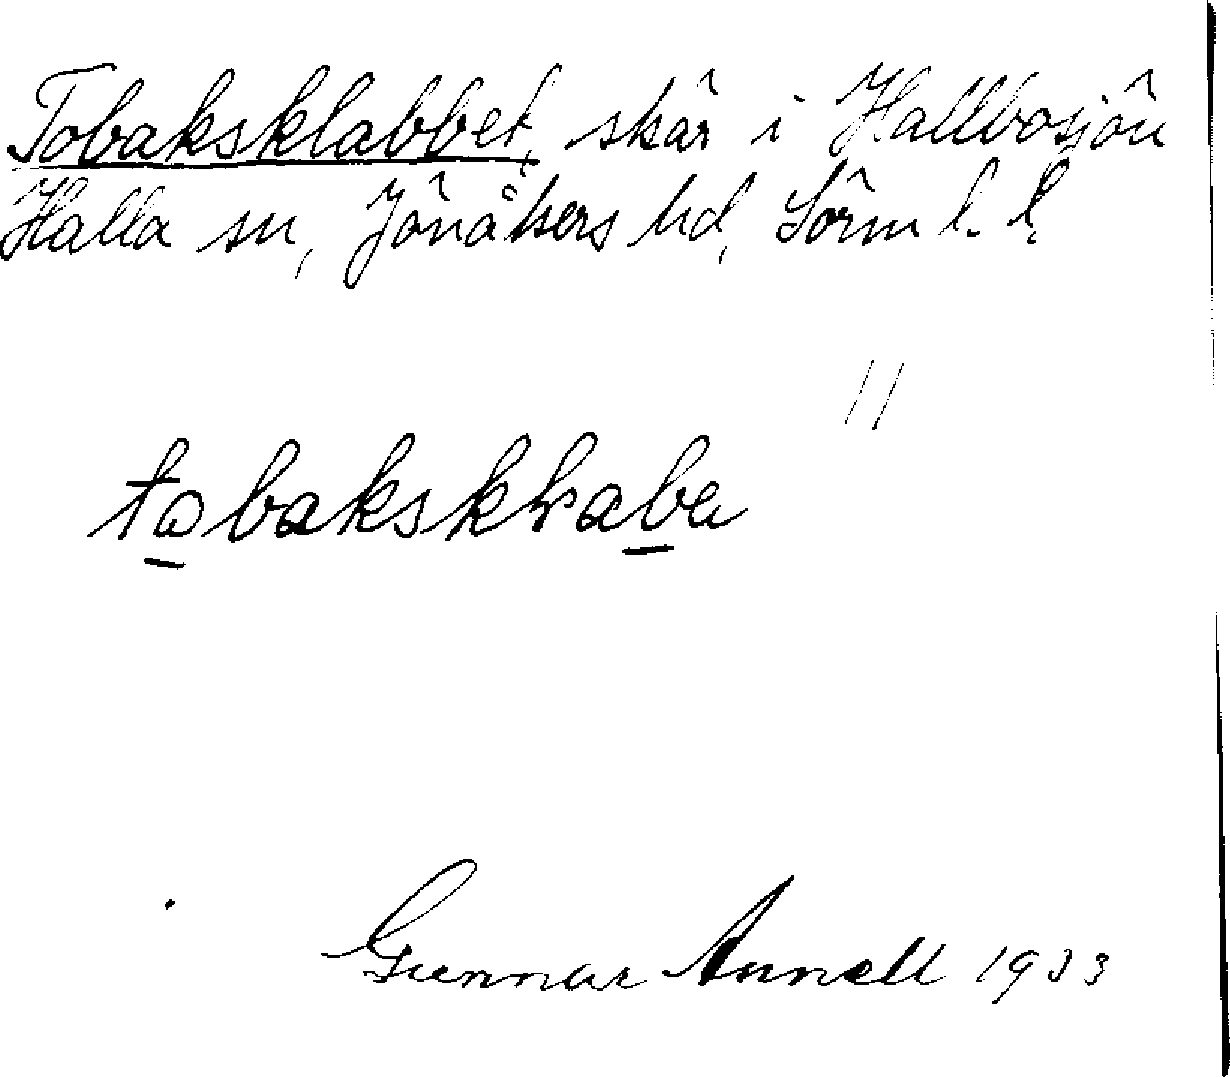 Tobaksklabbet, skär i Hallbosjön
Halla sn, Jönåkers hd, Sörml. l.
//
Gunnar Annell 1933